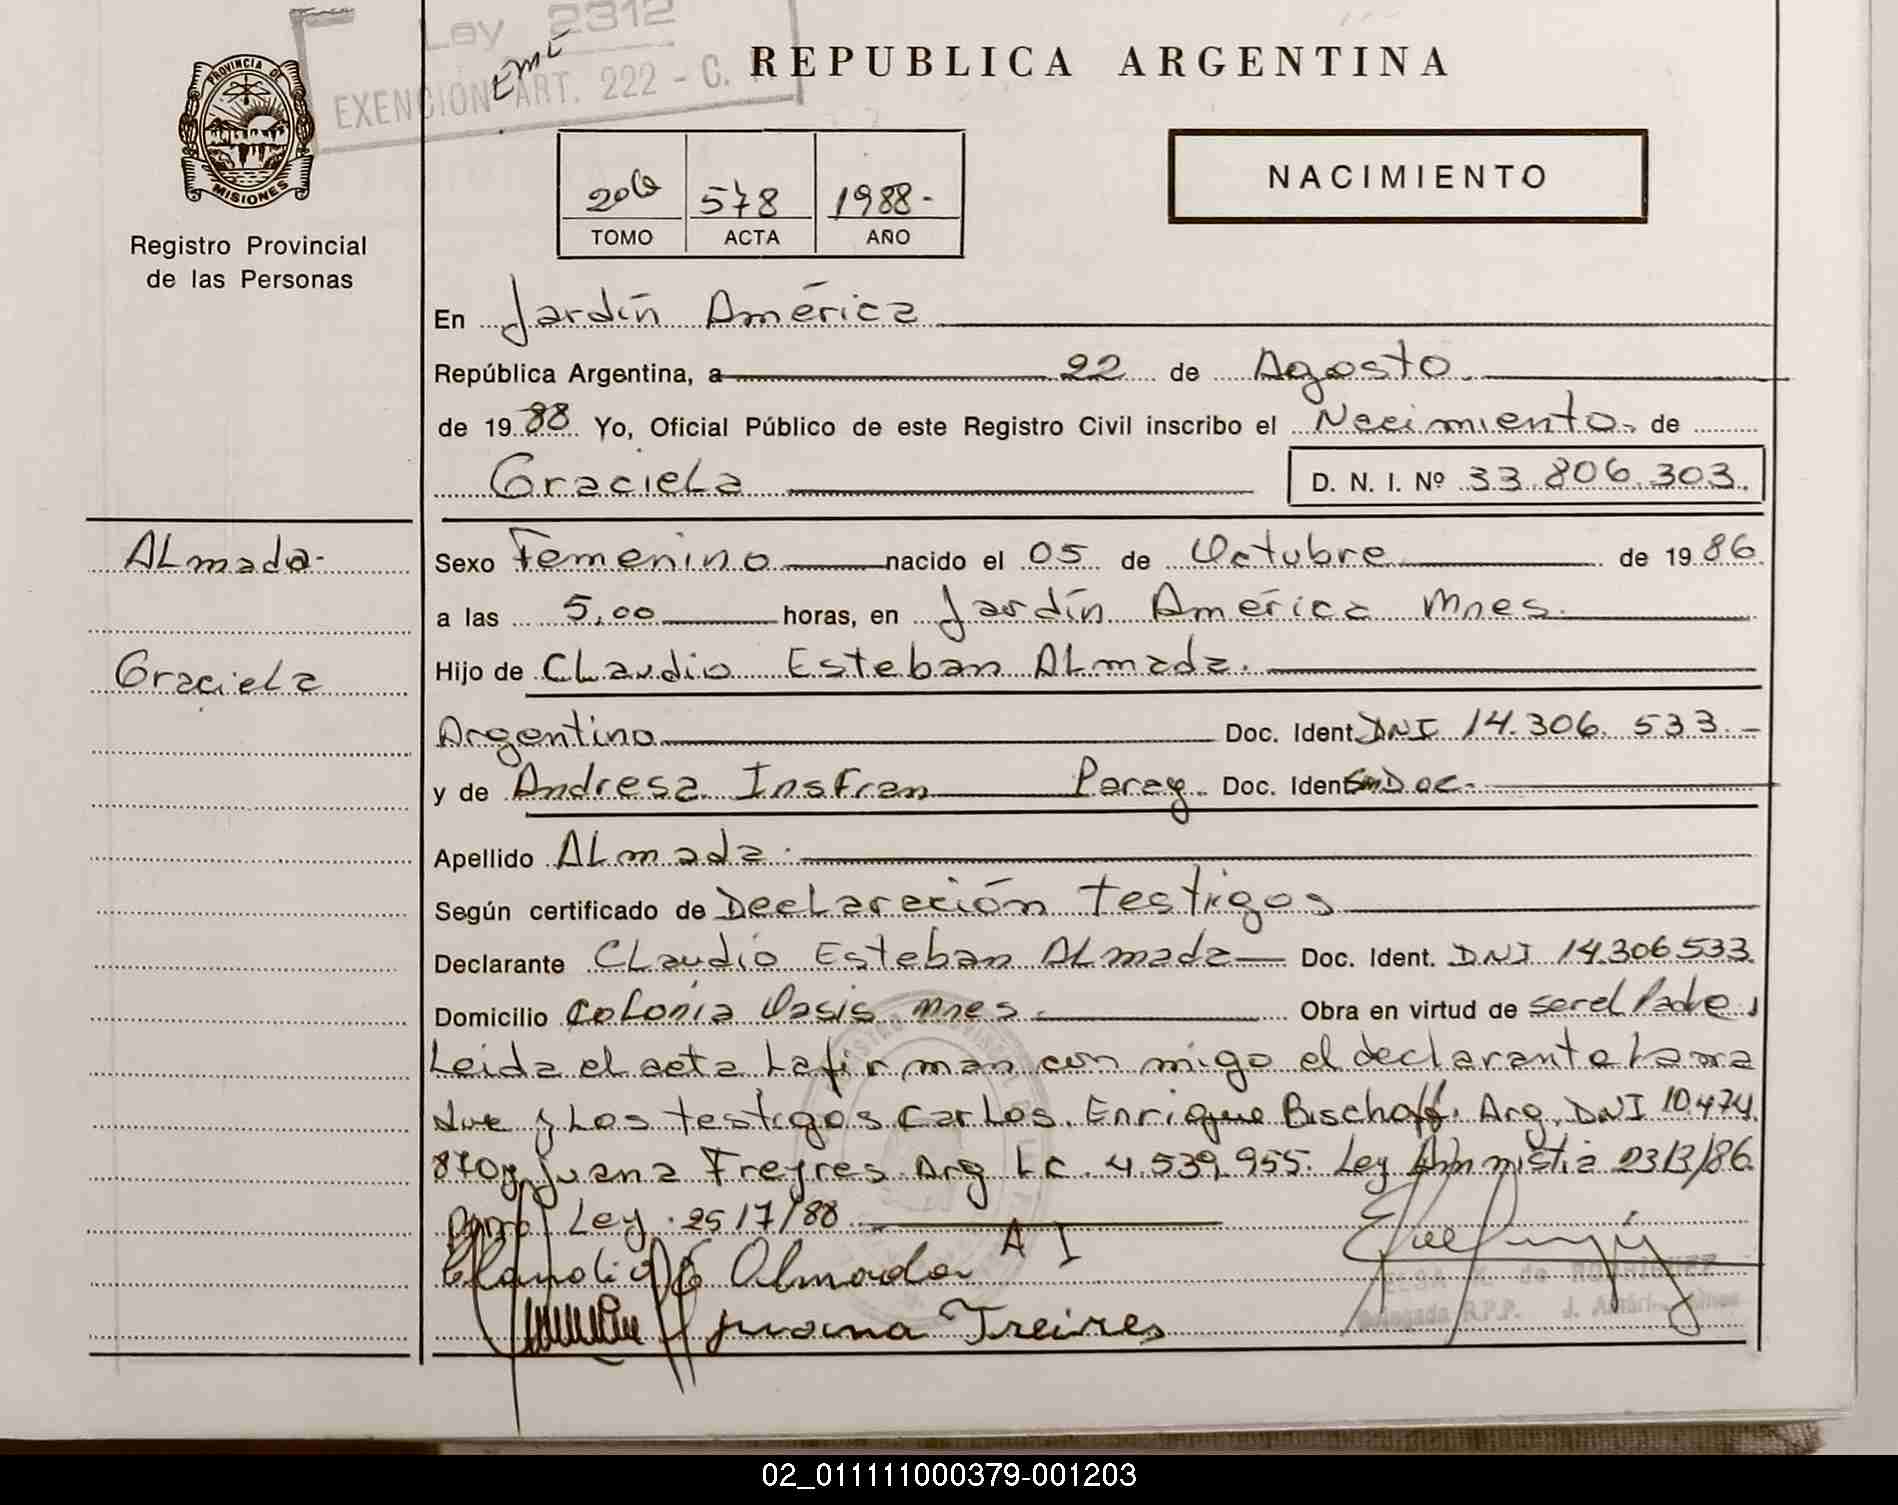 Ley 2312
Emi
EXENCIÓN ART. 222 - C.
PROVINCIA DE
MISIONES
Registro Provincial
de las Personas
REPUBLICA ARGENTINA
206 578 1988-
TOMO ACTA AÑO
NACIMIENTO
En Jardín América
República Argentina, a 22 de Agosto
de 1988 Yo, Oficial Público de este Registro Civil inscribo el Nacimiento de
Graciela D. N. I. Nº 33.806.303.
Almada-
Graciela
Sexo Femenino nacido el 05 de Octubre de 1986
a las 5,00 horas, en Jardín América Mnes.
Hijo de Claudio Esteban Almada.
Argentino Doc. Ident. DNI 14.306.533.-
y de Andresa Insfran Parag. Doc. Ident. Sin Doc.
Apellido Almada.
Según certificado de Declaración testigos
Declarante Claudio Esteban Almada Doc. Ident. DNI 14.306.533.
Domicilio Colonia Oasis Mnes. Obra en virtud de ser el Padre,
Leida el acta la firman con migo el declarante la ma
dre y Los testigos Carlos Enrique Bischoff. Arg. DNI 10.474.
870 y Juana Freyres Arg L.C. 4.539.955. Ley Amnistia 23/3/86.
Ley 25/7/88
A I
Claudio E Almada
Juana Freires
ELSA de RODRIGUEZ
Delegada R.P.P. J.
02_011111000379-001203